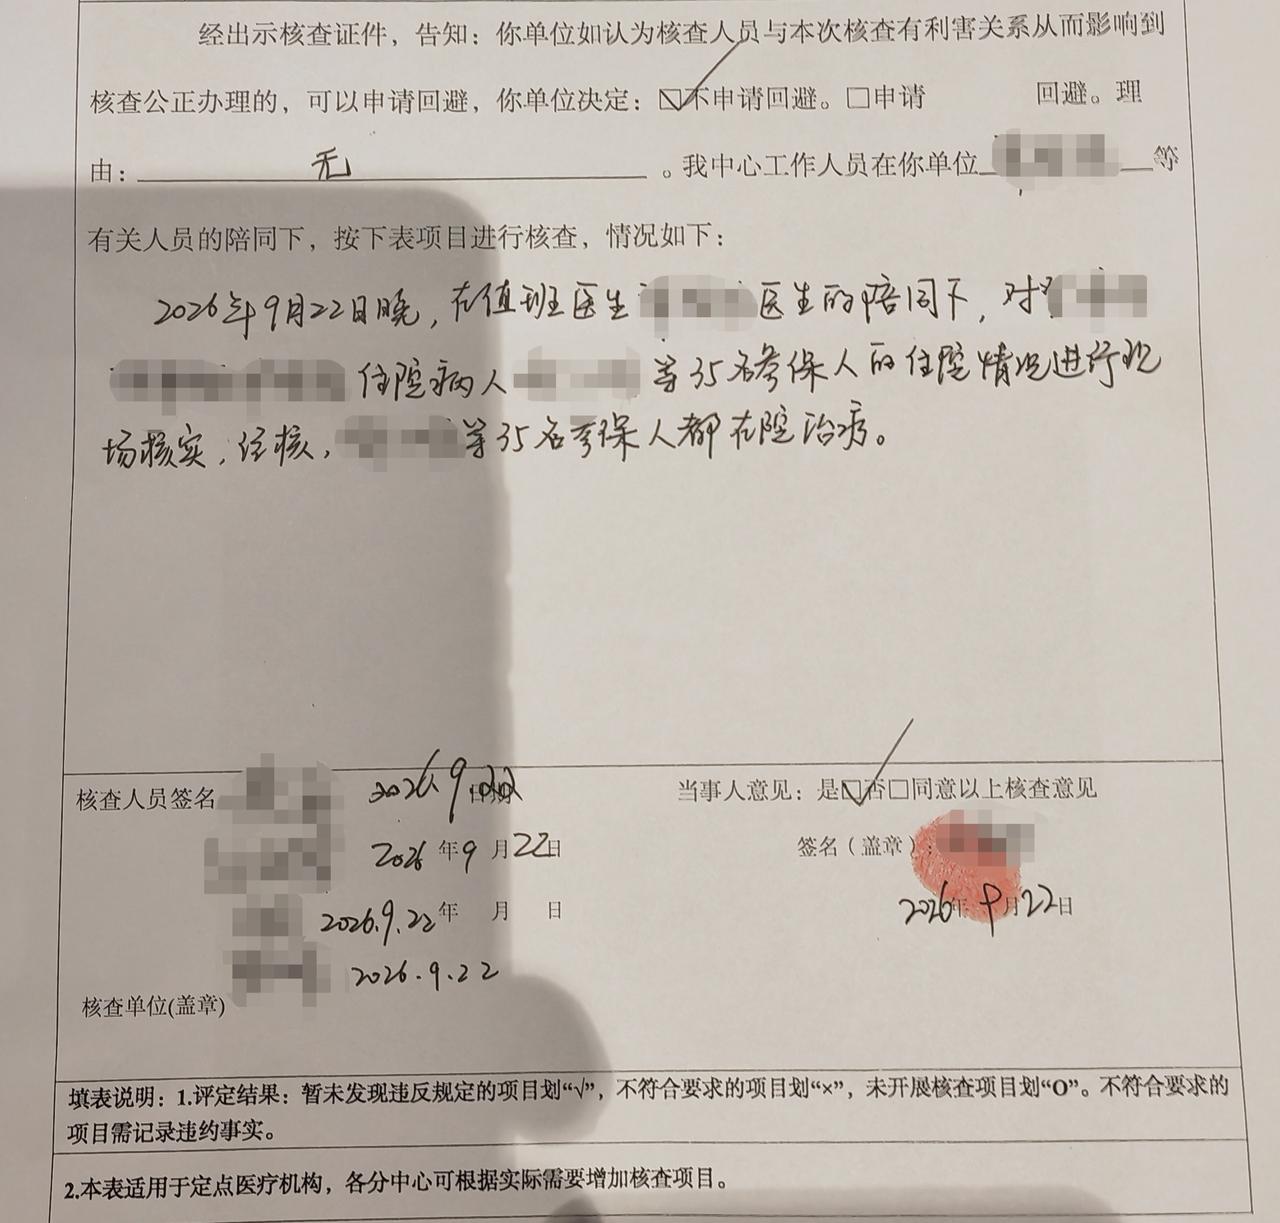 经出示核查证件，告知：你单位如认为核查人员与本次核查有利害关系从而影响到
核查公正办理的，可以申请回避，你单位决定：☑不申请回避。□申请 回避。理
由：无。我中心工作人员在你单位 等
有关人员的陪同下，按下表项目进行核查，情况如下：
2026年9月22日晚，在值班医生 医生的陪同下，对
住院病人 等35名参保人的住院情况进行现
场核实，经核， 等35名参保人都在院治疗。
核查人员签名 2026.9.22 日期
2026年9月22日
2026.9.22年 月 日
2026.9.22
核查单位(盖章)
当事人意见：是☑否□同意以上核查意见
签名（盖章）：
2026年9月22日
填表说明：1.评定结果：暂未发现违反规定的项目划“√”，不符合要求的项目划“×”，未开展核查项目划“O”。不符合要求的
项目需记录违约事实。
2.本表适用于定点医疗机构，各分中心可根据实际需要增加核查项目。